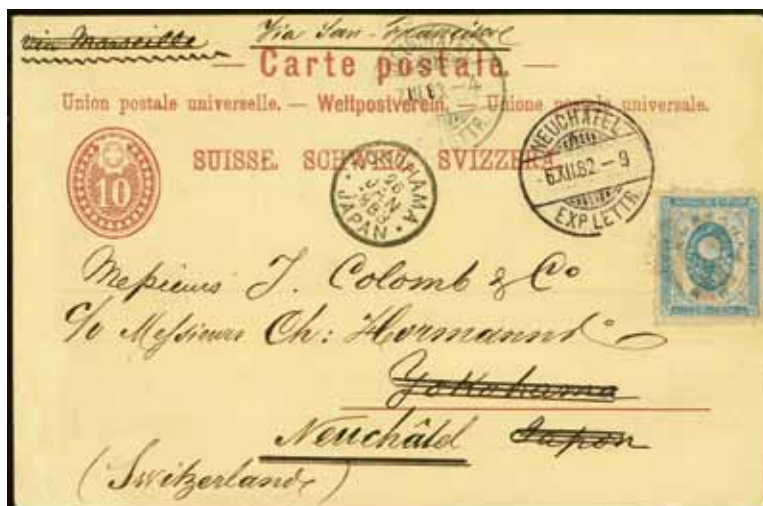 via Marseille Via San-Francisco
— Carte postale. —
Union postale universelle. — Weltpostverein. — Unione postale universale.
SUISSE. SCHWEIZ. SVIZZERA.
10
NEUCHATEL
6.XII.82 – 9
EXP. LETTR.
YOKOHAMA
26
JAN
1883
JAPAN
XII.82 – 4
LETTR.
Messieurs J. Colomb & Co
c/o Messieurs Ch: Hermann
Yokohama
Neuchâtel Japon
(Switzerland)